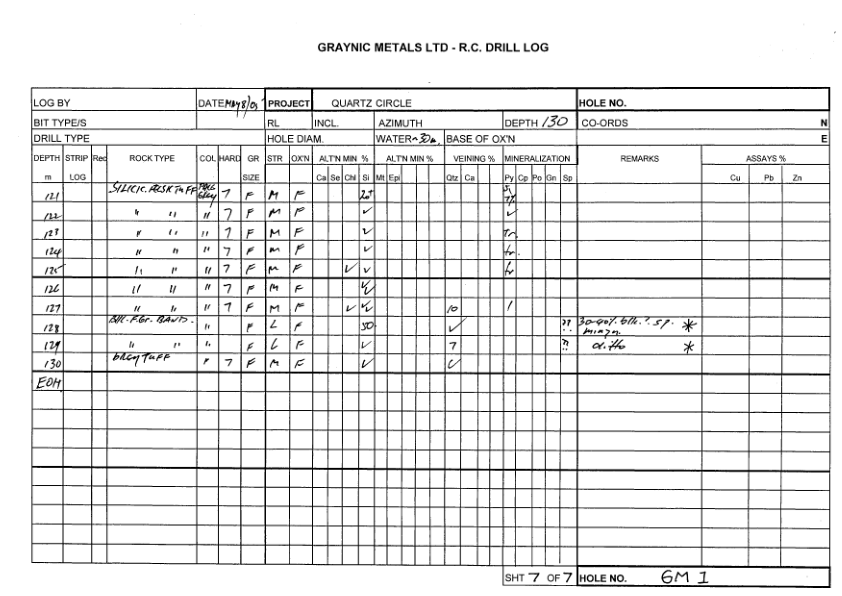 GRAYNIC METALS LTD - R.C. DRILL LOG
LOG BY DATE May 8/03 PROJECT QUARTZ CIRCLE HOLE NO.
BIT TYPE/S RL INCL. AZIMUTH DEPTH 130 CO-ORDS N
DRILL TYPE HOLE DIAM. WATER ~30m BASE OF OX'N E
DEPTH STRIP Rec ROCK TYPE COL HARD GR STR OX'N ALT'N MIN % ALT'N MIN % VEINING % MINERALIZATION REMARKS ASSAYS %
m LOG SIZE Ca Se Chl Si Mt Epi Qtz Ca Py Cp Po Gn Sp Cu Pb Zn
121 SILICIC. TUFF grey 7 F M F 20+
122 " " " 7 F M F ✓ ✓
123 " " " 7 F M F ✓ Tr.
124 " " " 7 F M F ✓ tr.
125 " " " 7 F M F ✓ ✓ tr
126 " " " 7 F M F ✓
127 " " " 7 F M F ✓ ✓ 10 /
128 Blk. F.Gr. BAND. " F L F 50. ✓ ?? 30-40%. blk. ? sp. minzn. *
129 " " " F L F ✓ 7 ?? ditto *
130 Grey TUFF " 7 F M F ✓ ✓
EOH
SHT 7 OF 7 HOLE NO. GM 1